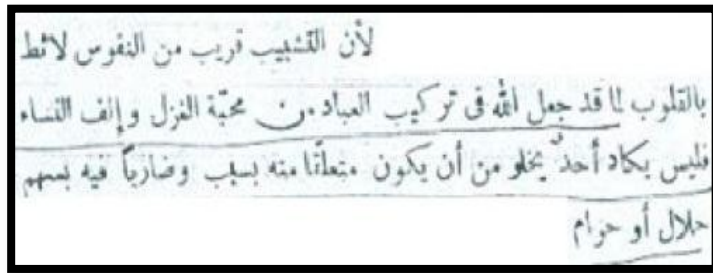 لأن التشبيب قريب من النفوس لائط
بالقلوب لما قد جعل الله فى تركيب العباد من محبّة الغزل وإلف النساء
فليس يكاد أحدٌ يخلو من أن يكون متعلّقا منه بسبب وضارباً فيه بسهم
حلال أو حرام